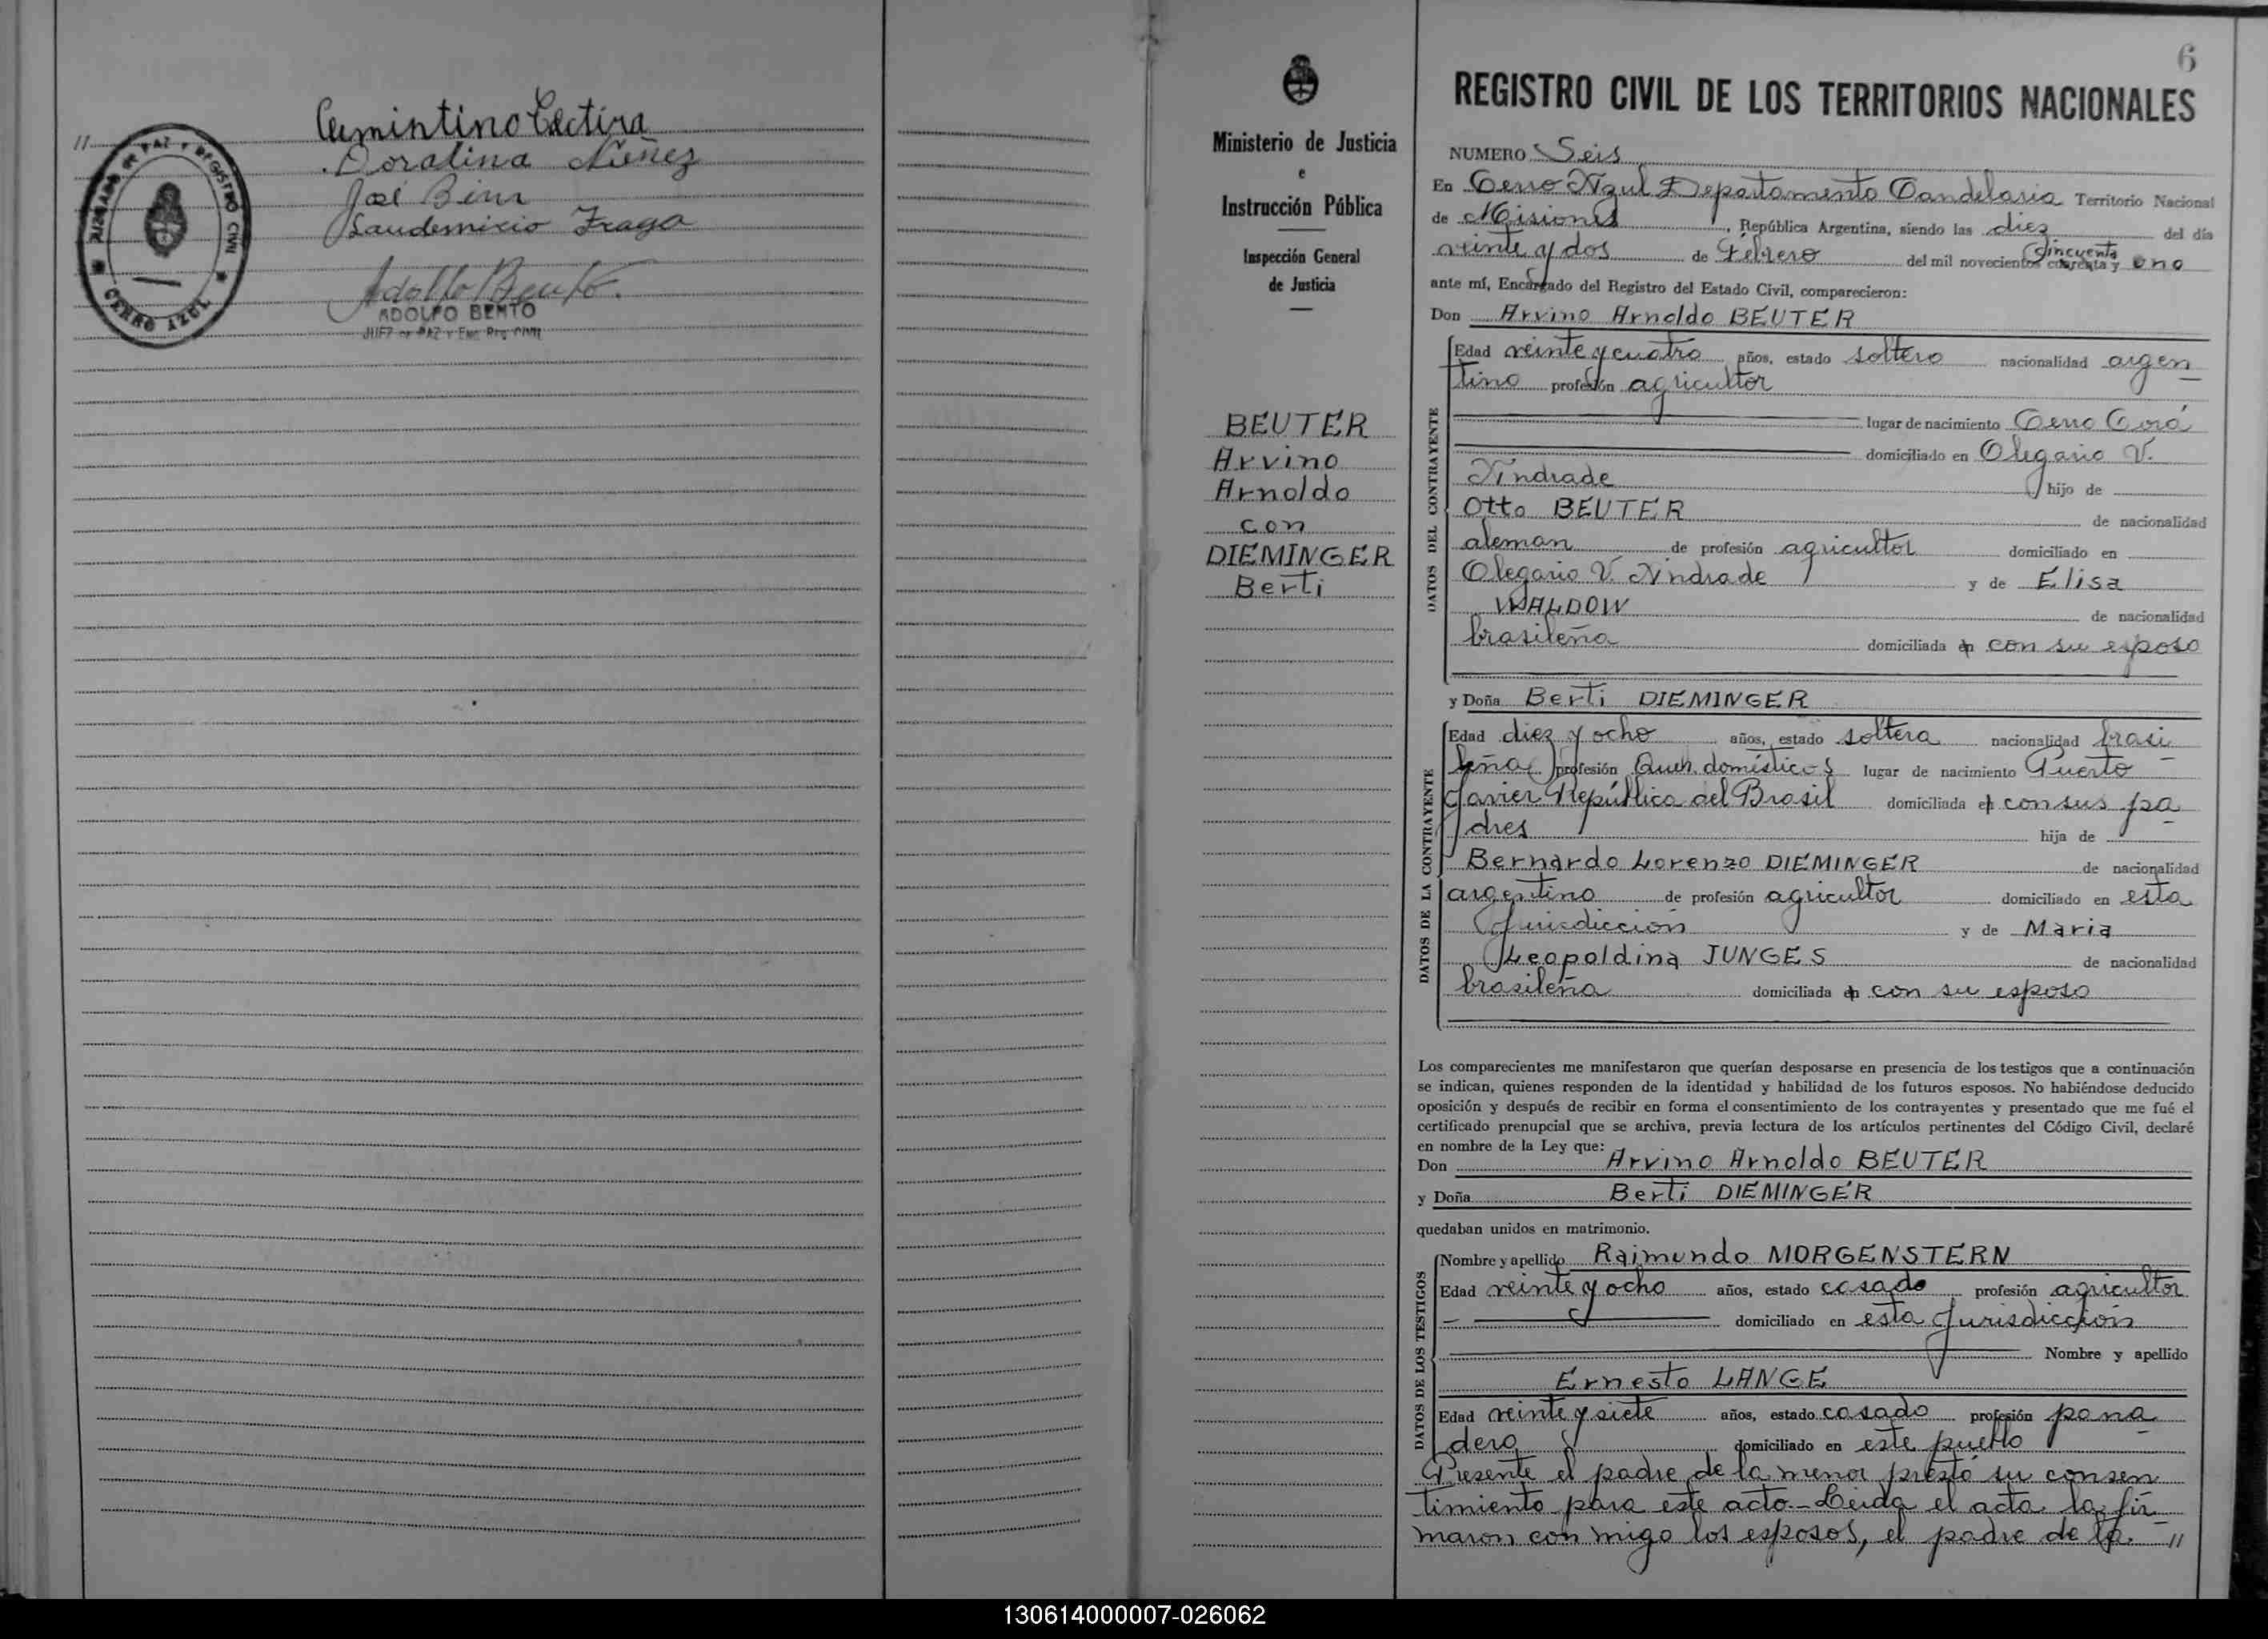 //
Doralina Núñez
José Bem
Laudemicio Fraga
Adolfo Bento
ADOLFO BENTO
JUEZ DE PAZ Y Enc. Reg. CIVIL
JUZGADO DE PAZ Y REGISTRO CIVIL
CERRO AZUL
Ministerio de Justicia
e
Instrucción Pública
Inspección General
de Justicia
BEUTER
Arvino
Arnoldo
con
DIEMINGER
Berti
6
REGISTRO CIVIL DE LOS TERRITORIOS NACIONALES
NUMERO Seis
En Cerro Azul Departamento Candelaria Territorio Nacional
de Misiones, República Argentina, siendo las diez del día
veinte y dos de Febrero del mil novecientos cuarenta y cincuenta uno
ante mí, Encargado del Registro del Estado Civil, comparecieron:
Don Arvino Arnoldo BEUTER
DATOS DEL CONTRAYENTE
Edad veinte y cuatro años, estado soltero nacionalidad argen
tino profesión agricultor
lugar de nacimiento Cerro Corá
domiciliado en Olegario V.
Andrade hijo de
Otto BEUTER de nacionalidad
aleman de profesión agricultor domiciliado en
Olegario V. Andrade y de Elisa
WALDOW de nacionalidad
brasileña domiciliada en con su esposo
y Doña Berti DIEMINGER
DATOS DE LA CONTRAYENTE
Edad diez y ocho años, estado soltera nacionalidad brasi
leña profesión Queh. domésticos lugar de nacimiento Puerto
Javier República del Brasil domiciliada en con sus pa
dres hija de
Bernardo Lorenzo DIEMINGER de nacionalidad
argentino de profesión agricultor domiciliado en esta
Jurisdicción y de Maria
Leopoldina JUNGES de nacionalidad
brasileña domiciliada en con su esposo
Los comparecientes me manifestaron que querían desposarse en presencia de los testigos que a continuación
se indican, quienes responden de la identidad y habilidad de los futuros esposos. No habiéndose deducido
oposición y después de recibir en forma el consentimiento de los contrayentes y presentado que me fué el
certificado prenupcial que se archiva, previa lectura de los artículos pertinentes del Código Civil, declaré
en nombre de la Ley que:
Don Arvino Arnoldo BEUTER
y Doña Berti DIEMINGER
quedaban unidos en matrimonio.
DATOS DE LOS TESTIGOS
Nombre y apellido Raimundo MORGENSTERN
Edad veinte y ocho años, estado casado profesión agricultor
domiciliado en esta Jurisdicción
Nombre y apellido
Ernesto LANGE
Edad veinte y siete años, estado casado profesión pana
dero domiciliado en este pueblo
Presente el padre de la menor prestó su consen
timiento para este acto.- Leida el acta la fir
maron con migo los esposos, el padre de la //
130614000007-026062